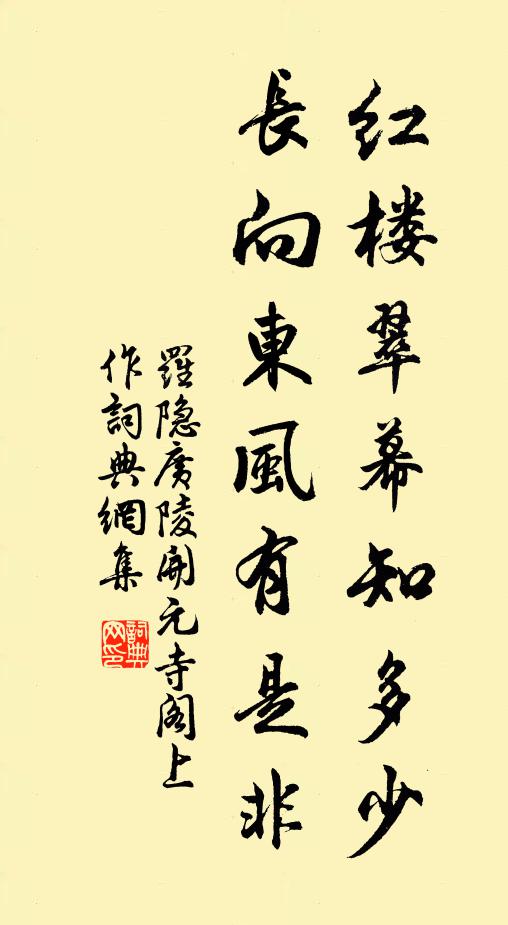 红楼翠幕知多少
長向東風有是非
羅隐廣陵開元寺阁上
作詞典網集
詞典网印